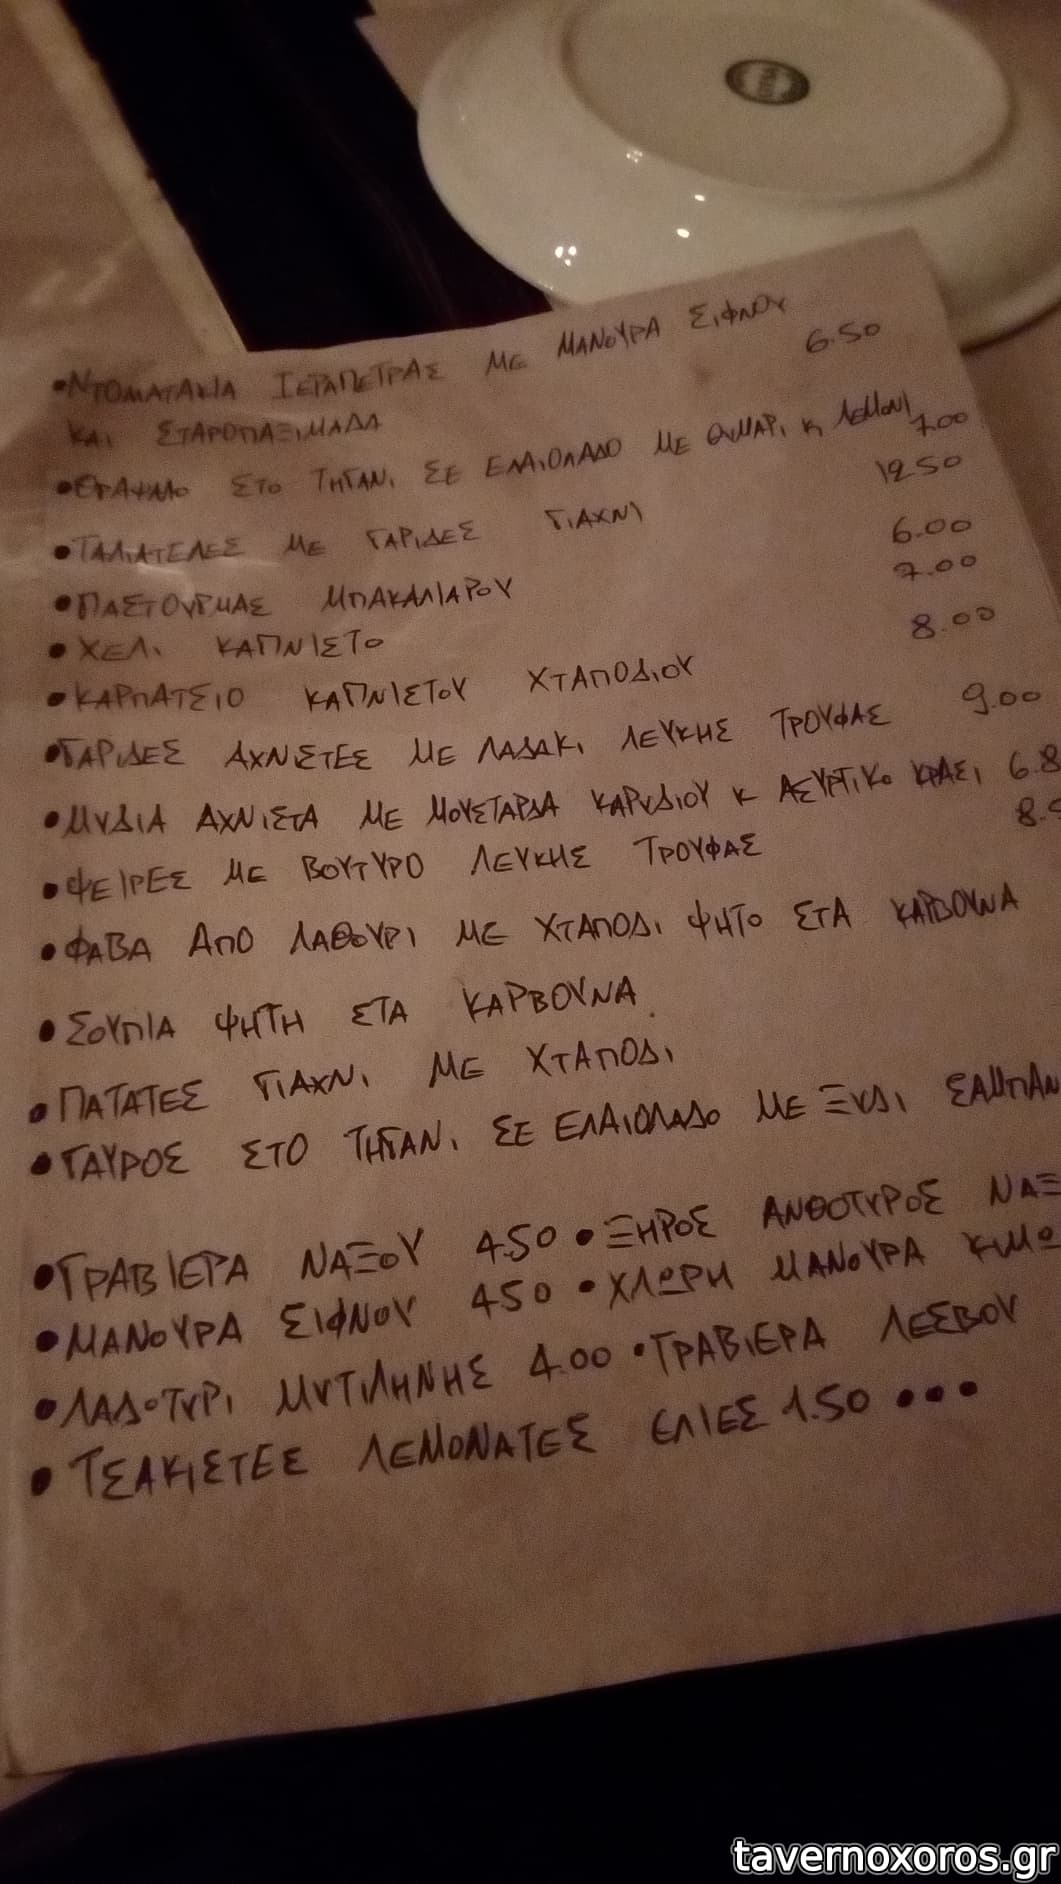 •ΝΤΟΜΑΤΑΚΙΑ ΙΕΡΑΠΕΤΡΑΣ ΜΕ ΜΑΝΟΥΡΑ ΣΙΦΝΟΥ
ΚΑΙ ΣΤΑΡΟΠΑΞΙΜΑΔΑ 6.50
•ΘΡΑΨΑΛΟ ΣΤΟ ΤΗΓΑΝΙ ΣΕ ΕΛΑΙΟΛΑΔΟ ΜΕ ΘΥΜΑΡΙ Κ ΛΕΜΟΝΙ 7.00
•ΤΑΛΙΑΤΕΛΕΣ ΜΕ ΓΑΡΙΔΕΣ ΓΙΑΧΝΙ 12.50
•ΠΑΣΤΟΥΡΜΑΣ ΜΠΑΚΑΛΙΑΡΟΥ 6.00
•ΧΕΛΙ ΚΑΠΝΙΣΤΟ 7.00
•ΚΑΡΠΑΤΣΙΟ ΚΑΠΝΙΣΤΟΥ ΧΤΑΠΟΔΙΟΥ 8.00
•ΓΑΡΙΔΕΣ ΑΧΝΙΣΤΕΣ ΜΕ ΛΑΔΑΚΙ ΛΕΥΚΗΣ ΤΡΟΥΦΑΣ 9.00
•ΜΥΔΙΑ ΑΧΝΙΣΤΑ ΜΕ ΜΟΥΣΤΑΡΔΑ ΚΑΡΥΔΙΟΥ Κ ΑΣΥΡΤΙΚΟ ΚΡΑΣΙ 6.8
•ΨΕΙΡΕΣ ΜΕ ΒΟΥΤΥΡΟ ΛΕΥΚΗΣ ΤΡΟΥΦΑΣ 8.5
•ΦΑΒΑ ΑΠΟ ΛΑΘΟΥΡΙ ΜΕ ΧΤΑΠΟΔΙ ΨΗΤΟ ΣΤΑ ΚΑΡΒΟΥΝΑ
•ΣΟΥΠΙΑ ΨΗΤΗ ΣΤΑ ΚΑΡΒΟΥΝΑ
•ΠΑΤΑΤΕΣ ΓΙΑΧΝΙ ΜΕ ΧΤΑΠΟΔΙ
•ΓΑΥΡΟΣ ΣΤΟ ΤΗΓΑΝΙ ΣΕ ΕΛΑΙΟΛΑΔΟ ΜΕ ΞΥΔΙ ΣΑΜΠΑΝ
•ΓΡΑΒΙΕΡΑ ΝΑΞΟΥ 4.50 •ΞΗΡΟΣ ΑΝΘΟΤΥΡΟΣ ΝΑΞ
•ΜΑΝΟΥΡΑ ΣΙΦΝΟΥ 4.50 •ΧΛΩΡΗ ΜΑΝΟΥΡΑ ΚΙΜΩ
•ΛΑΔΟΤΥΡΙ ΜΥΤΙΛΗΝΗΣ 4.00 •ΓΡΑΒΙΕΡΑ ΛΕΣΒΟΥ
•ΤΣΑΚΙΣΤΕΣ ΛΕΜΟΝΑΤΕΣ ΕΛΙΕΣ 1.50 •••
tavernoxoros.gr